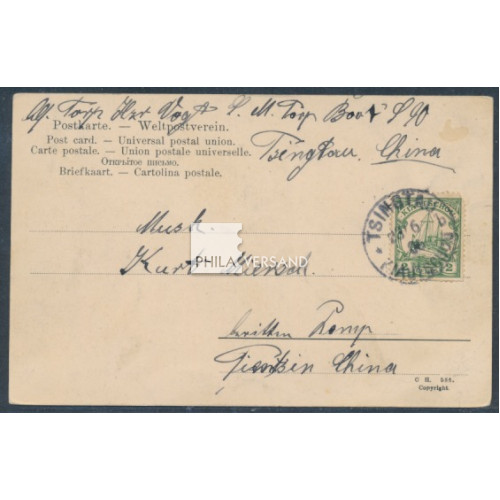 Torp. Hzr Vogt S. M. Torp Boot S 90
Postkarte. — Weltpostverein.
Post card. — Universal postal union.
Carte postale. — Union postale universelle.
Открытое письмо.
Briefkaart. — Cartolina postale.
Tsingtau, China
TSINGTAU
KIAUTSCHOU
2 2
Musk.
Kurt
PHILA VERSAND
Comp
Tientsin China
C H.
Copyright.